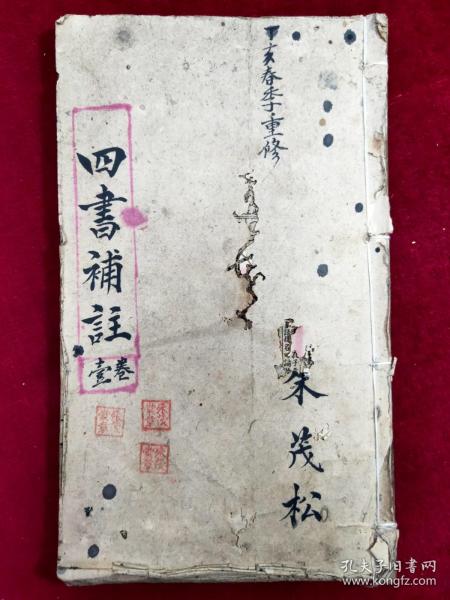 丁亥春季重修
四書補註
卷壹
朱茂松
孔夫子旧书网
www.kongfz.com